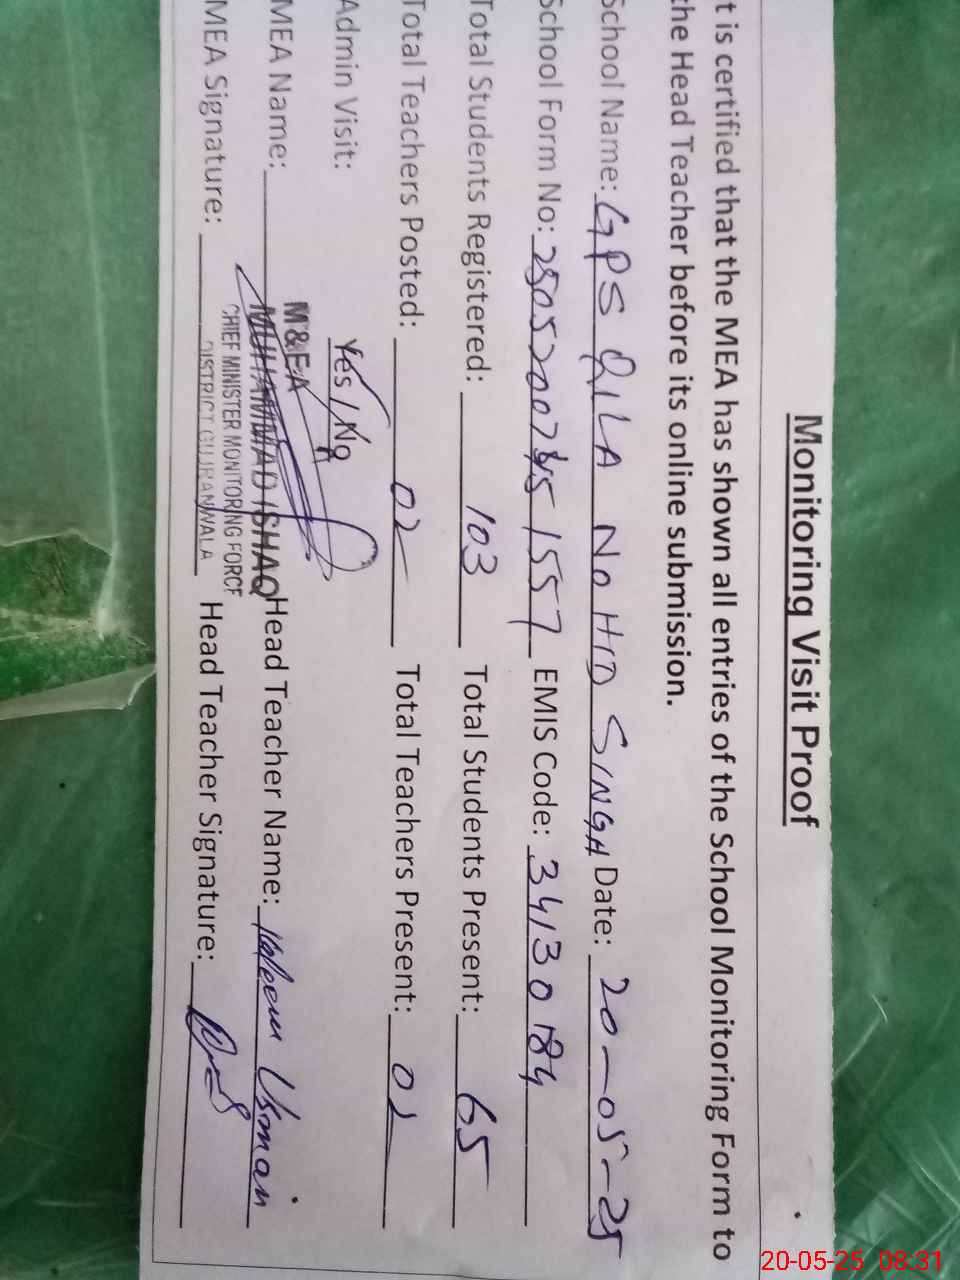 Monitoring Visit Proof
t is certified that the MEA has shown all entries of the School Monitoring Form to
the Head Teacher before its online submission.
School Name: GPS QILA NOHID SINGH Date: 20-05-25
School Form No: 25052007451557 EMIS Code: 34130184
Total Students Registered: 103 Total Students Present: 65
Total Teachers Posted: 02 Total Teachers Present: 02
Admin Visit: Yes / No
M&EA
MEA Name: MUHAMMAD ISHAQ Head Teacher Name: Usman
CHIEF MINISTER MONITORING FORCE
MEA Signature: DISTRICT GUJRANWALA Head Teacher Signature:
20-05-25 08:31